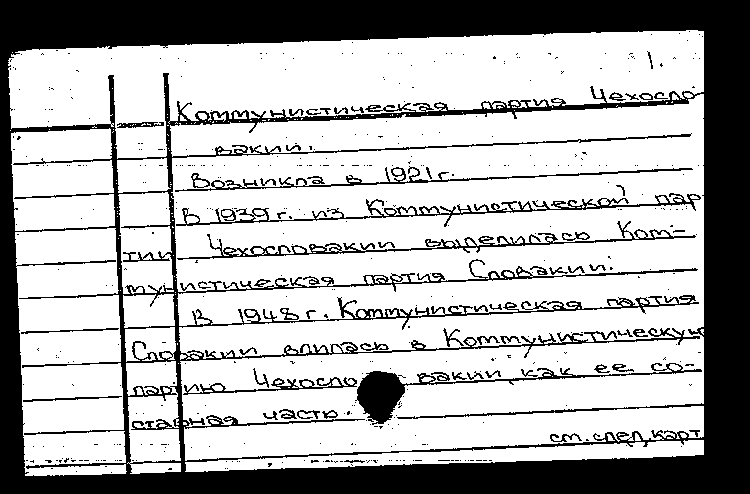 1.
Коммунистическая партия Чехосло-
вакии.
Возникла в 1921 г.
В 1939 г. из Коммунистической пар
тии Чехословакии выделилась Ком-
мунистическая партия Словакии.
В 1948 г. Коммунистическая партия
Словакии влилась в Коммунистическую
партию Чехосло вакии, как ее со-
ставная часть.
см. след. карт